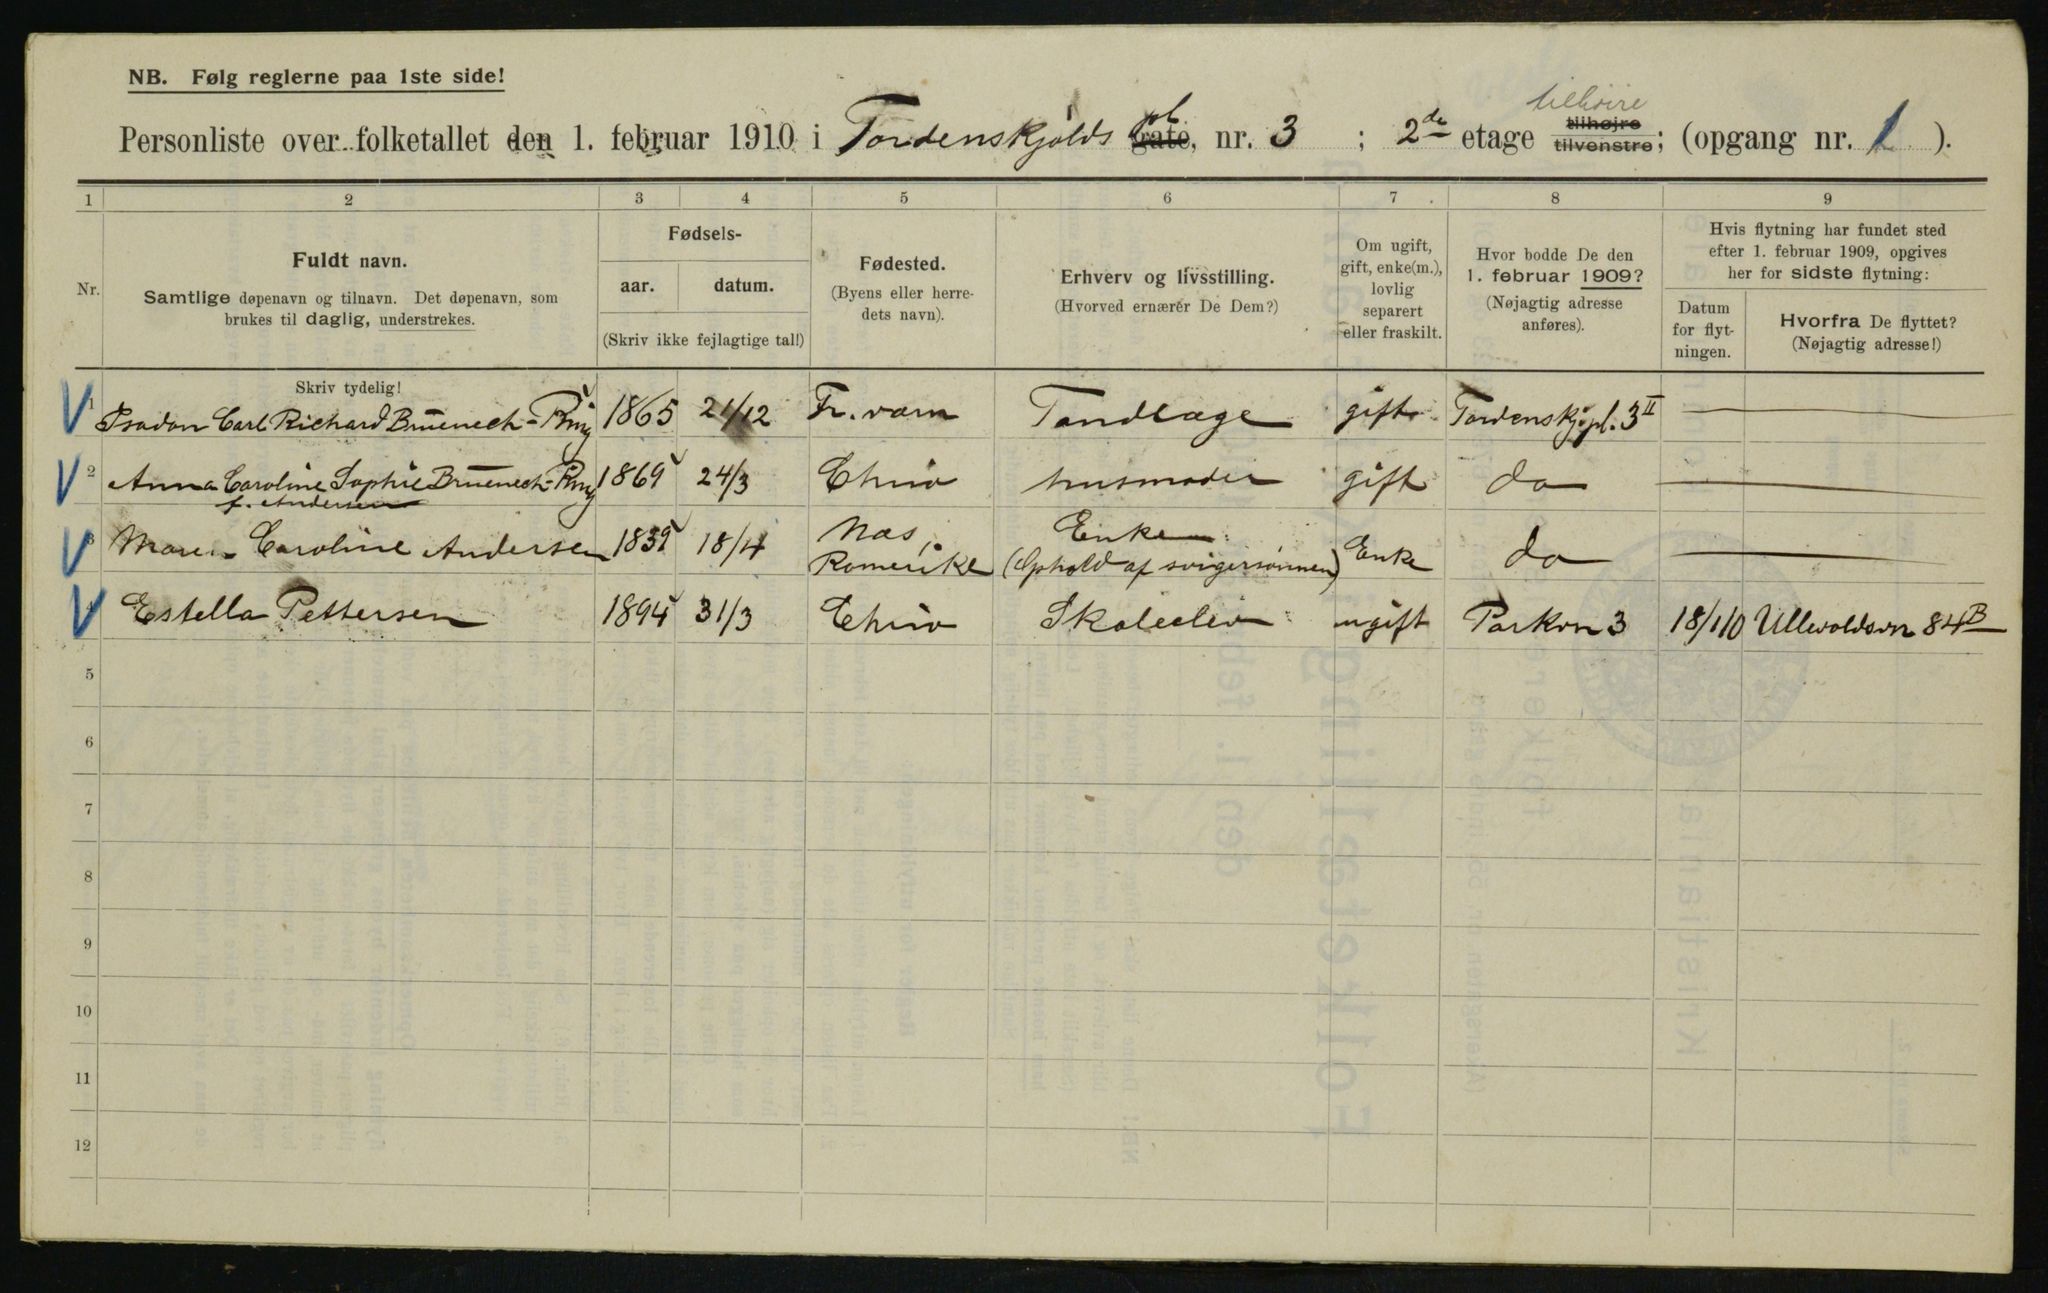 NB. Følg reglerne paa 1ste side!
tilhöire
Personliste over folketallet den 1. februar 1910 i Tordenskjolds gate, pl. nr. 3 ; 2de etage tilhøjre tilvenstre; (opgang nr. 1 ).
1 2 3 4 5 6 7 8 9
Nr.
Fuldt navn.
Samtlige døpenavn og tilnavn. Det døpenavn, som
brukes til daglig, understrekes.
Skriv tydelig!
Fødsels-
aar. datum.
(Skriv ikke fejlagtige tal!)
Fødested.
(Byens eller herre-
dets navn).
Erhverv og livsstilling.
(Hvorved ernærer De Dem?)
Om ugift,
gift, enke(m.),
lovlig
separert
eller fraskilt.
Hvor bodde De den
1. februar 1909?
(Nøjagtig adresse
anføres).
Hvis flytning har fundet sted
efter 1. februar 1909, opgives
her for sidste flytning:
Datum
for flyt-
ningen.
Hvorfra De flyttet?
(Nøjagtig adresse!)
1 Carl Richard Bruenech-Ring 1865 21/12 Fr.værn Tandlæge gift Tordenskj.pl. 3 II
2 Anna Caroline Sophie Bruenech-Ring 1869 24/3 Chria husmoder gift do
f. Andersen
3 Maren Caroline Andersen 1839 18/4 Næs, Enke Enke do
Romerike (Ophold af svigersønnen)
4 Estella Pettersen 1894 31/3 Chria Skoleelev ugift Parkvn 3 18/1 10 Ullevoldsvn 84B
5
6
7
8
9
10
11
12